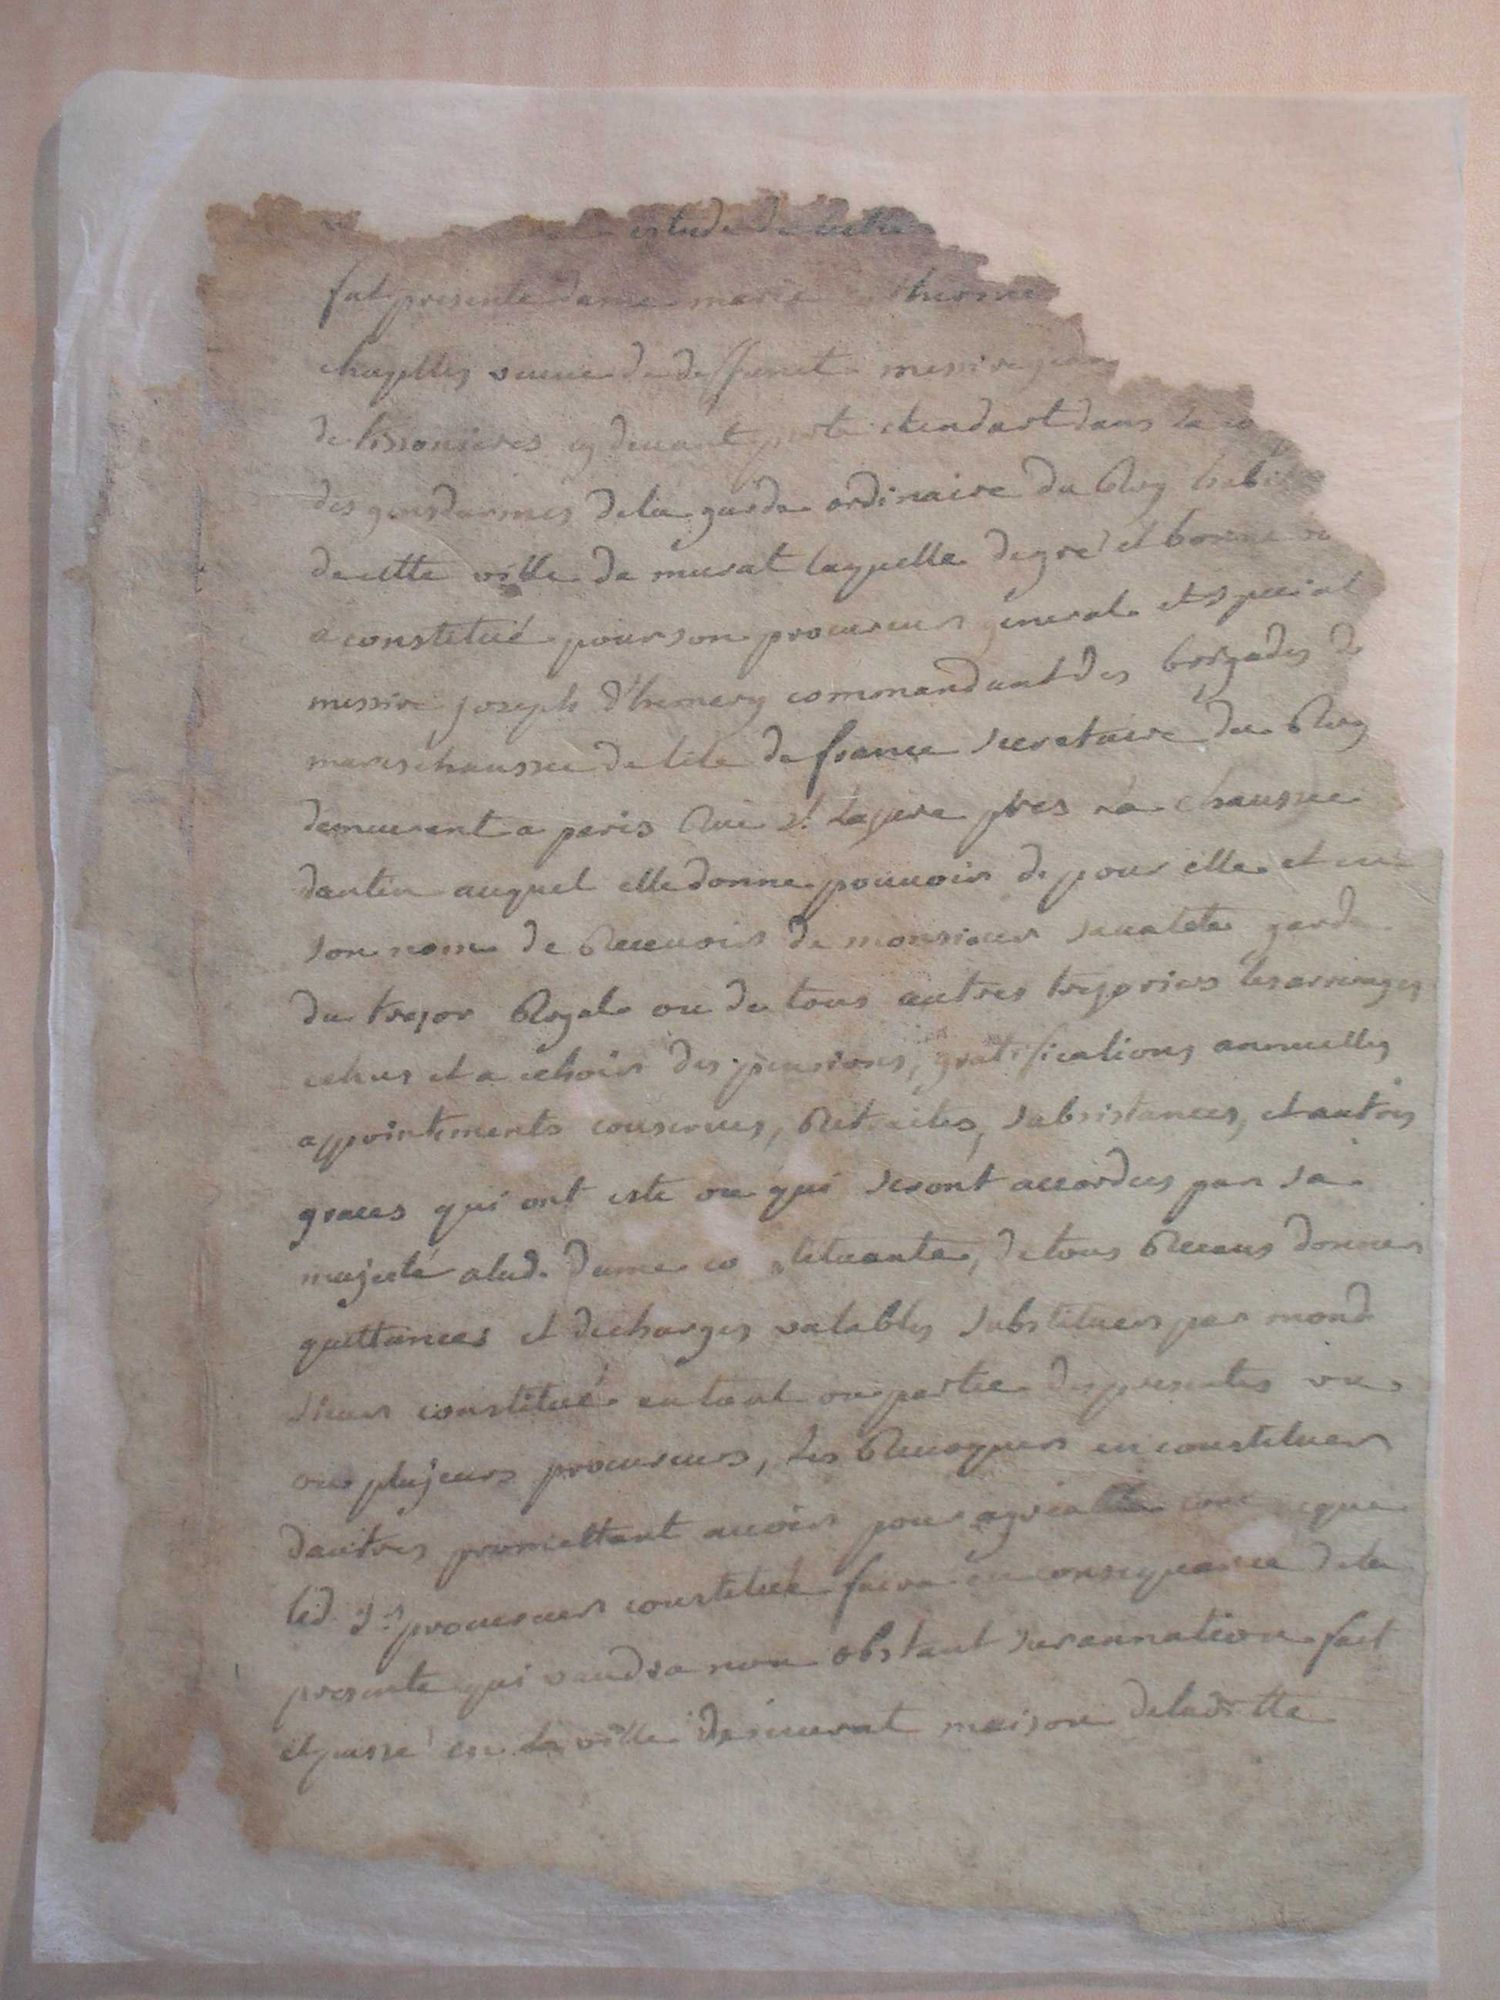 estude de
fut presente dame marie
chapelles veuve de deffunct messire jean
de tissonieres cy devant porte etendart dans la co
des gensdarmes de la garde ordinaire du Roy habit
de cette ville de murat laquelle de gré et bonne vo
a constitué pour son procureur general et special
messire joseph d'hemery commandant des brigades de
mareschaussee de lile de france secretaire du Roy
demeurent a paris Rue st lazare pres la chaussee
dantin auquel elle donne pouvoir de pour elle et en
son nom de Recevoir de monsieur savalete garde
du tresor Royal ou de tous autres tresoriers les arrerages
echus et a echoir des pensions, gratifications annuelles
appointements conserves, Retraites, subsistances, et autres
graces qui ont este ou qui seront accordees par sa
majesté a lad. dame co stituante, de tous Receus donner
quittances et decharges valables substituer par mond
sieur constitué en tout ou partie des presentes un
ou plusieurs procureurs, les Revoquer en constituer
dautres promettant avoir pour agreable que
led. sr procureur constitué faira en consequance de la
presente qui vaudra non obstant surannation fait
et passé en la ville de murat maison de ladite